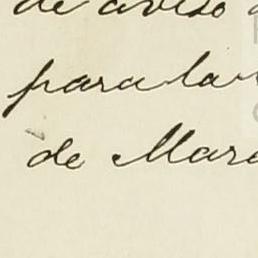 de aviso
para la
de Marz